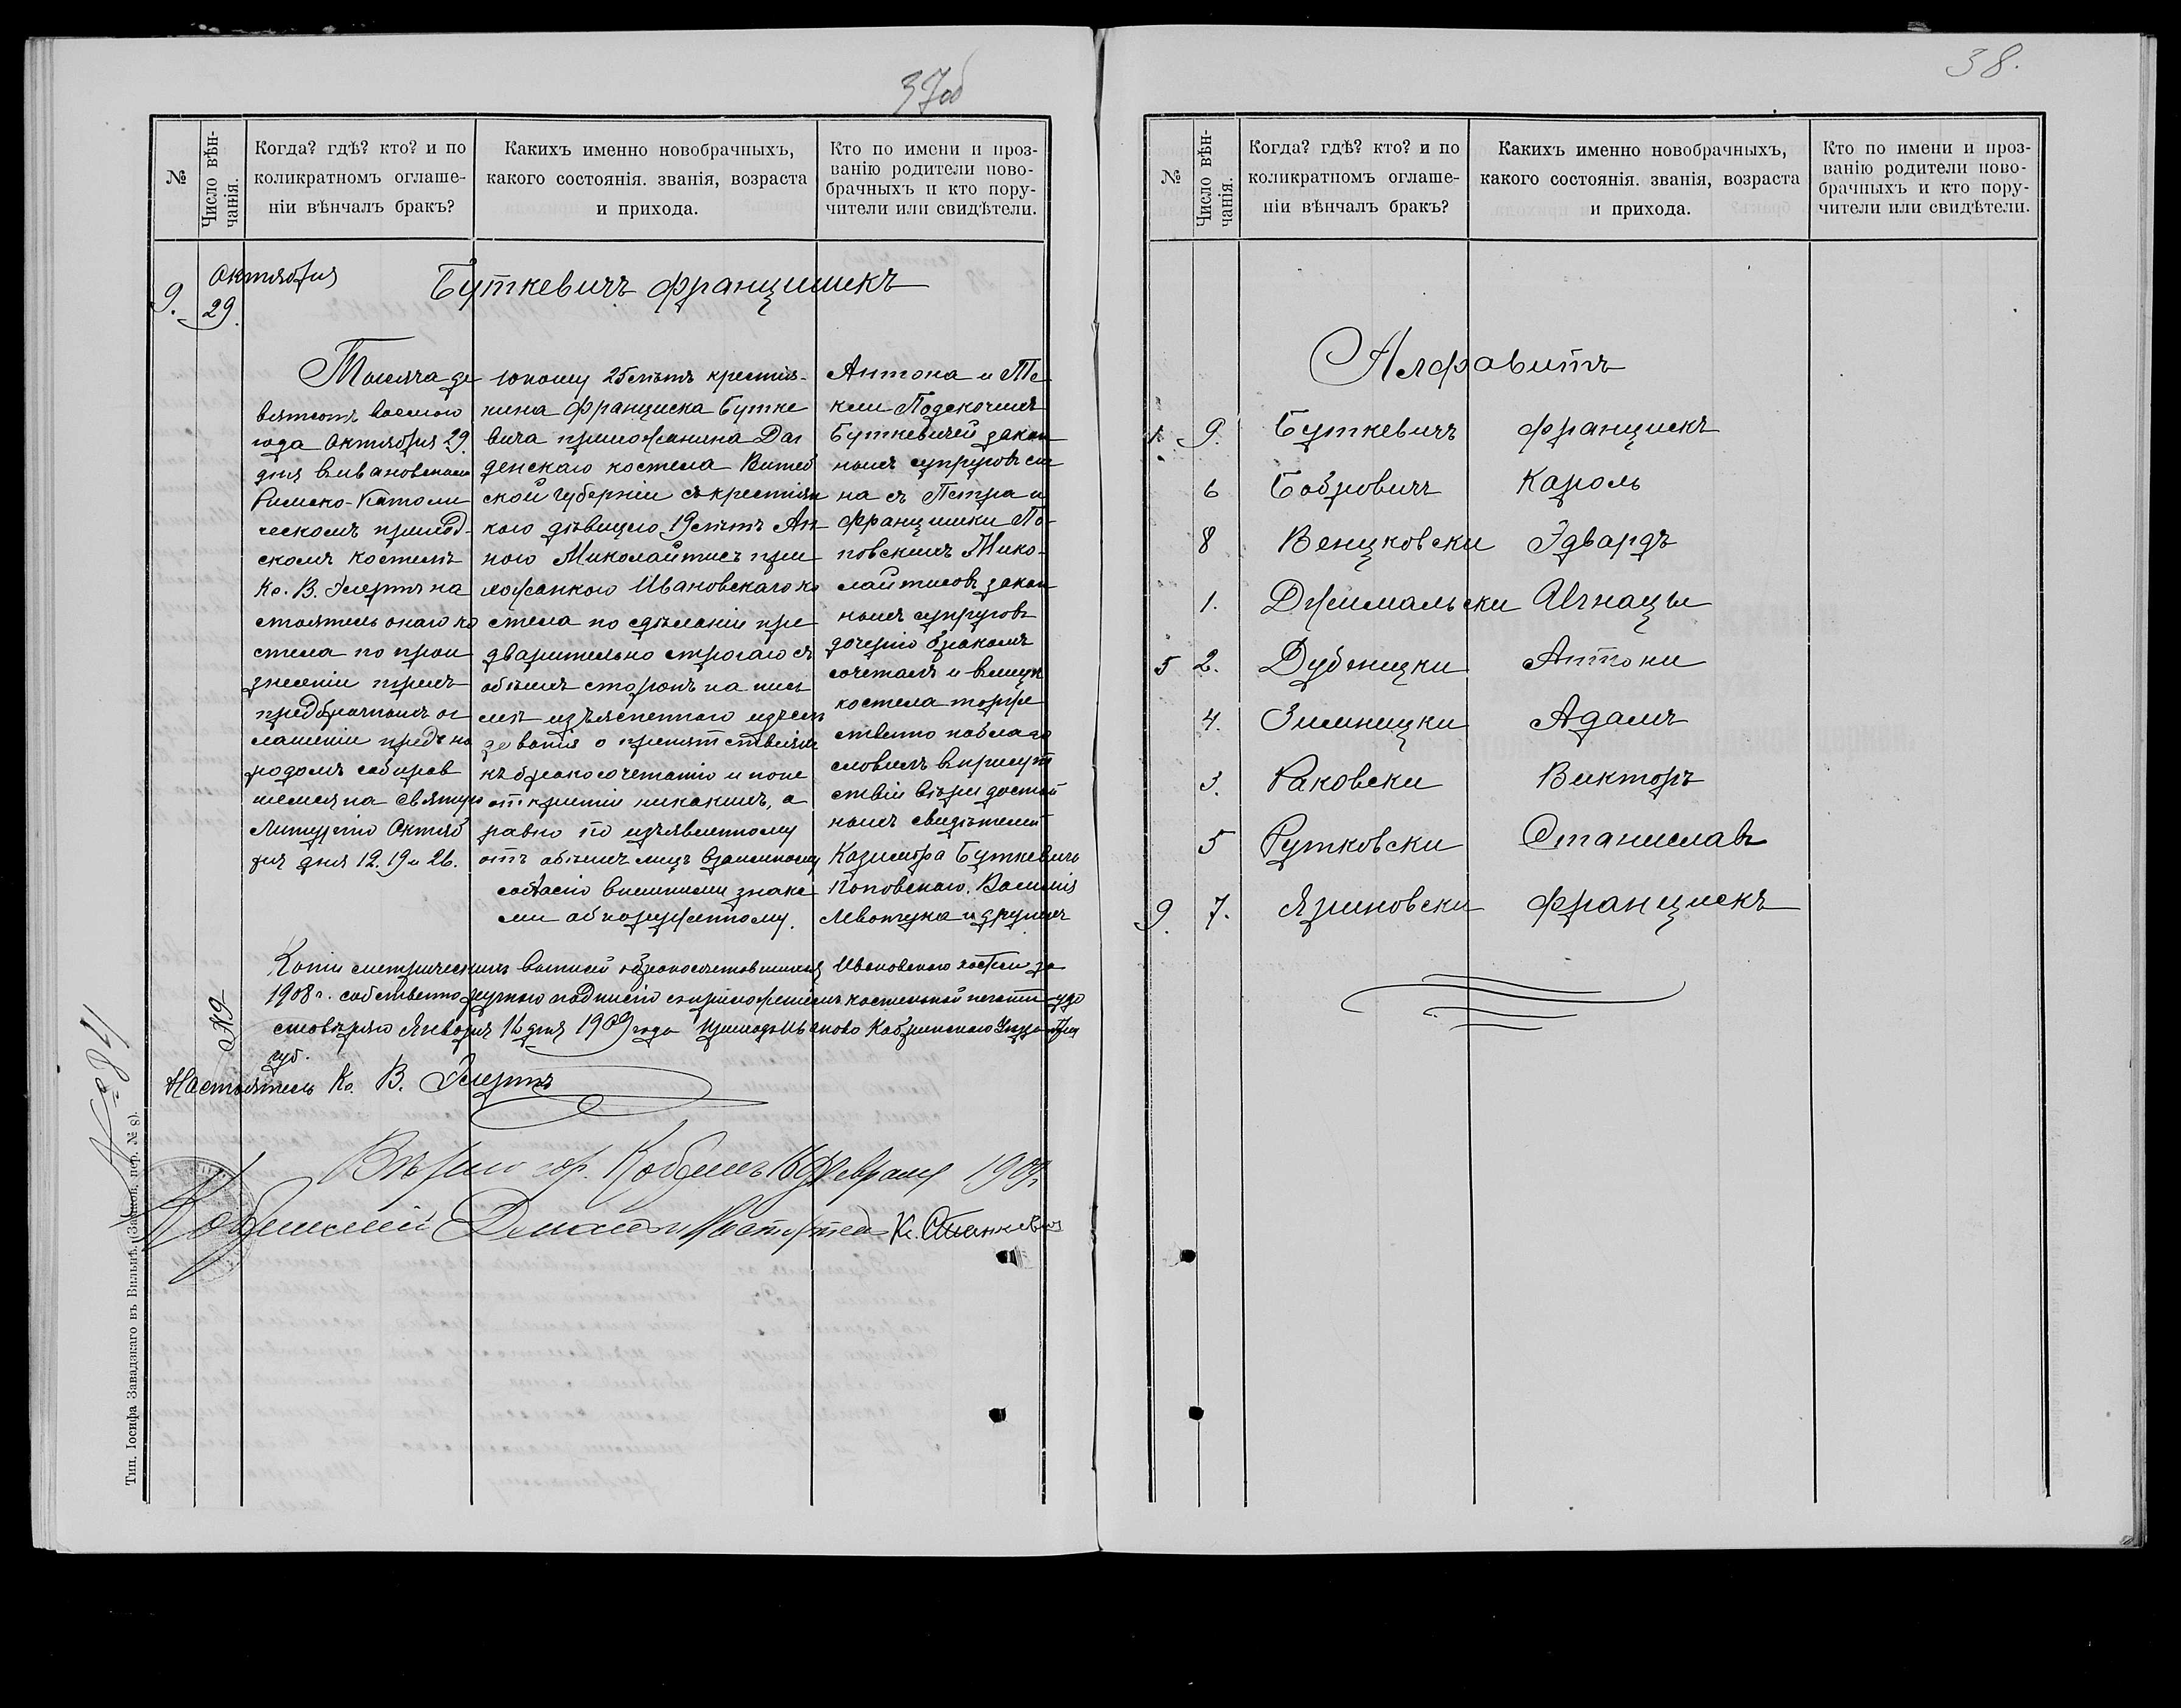 37об
№
Число вѣн-
чанія.
Когда? гдѣ? кто? и по
коликратномъ оглаше-
ніи вѣнчалъ бракъ?
Какихъ именно новобрачныхъ,
какого состоянія. званія, возраста
и прихода.
Кто по имени и проз-
ванію родители ново-
брачныхъ и кто пору-
чители или свидѣтели.
9.
Октября
29.
Буткевичъ Францишекъ
Тысяча де
вятсотъ восмого
года Октября 29.
дня в Ивановскомъ
Римско-Католи
ческомъ приход-
скомъ костелѣ
Кс. В. Эллертъ на
стоятель онаго ко
стела по прои
знесеніи трехъ
предбрачныхъ ог
лашеніи предъ на
родомъ собрав
шемся на святую
Литургію Октяб
ря дня 12. 19 и 26.
юношу 25 лѣтъ крестья-
нина Франциска Бутке
вича прихожанина Даг
денскаго костела Витеб
ской губерніи съ крестьян
кою дѣвицею 19 лѣтъ Ан-
ною Миколайтисъ при
хожанкою Ивановскаго ко
стела по сдѣланіи пре
дварительно строгаго съ
обѣихъ сторонъ на пись
мѣ изъясненнаго изслѣ
дованія о препятствіяхъ
къ бракосочетанію и по не
открытіи никакихъ, а
равно по изъявленному
отъ обѣихъ лицъ взаимному
согласію внешними знака
ми обнаруженному.
Антона и Те
кли Подскочимъ
Буткевичей закон
ныхъ супруговъ сы
на съ Петра и
Францишки По-
повскихъ Мико-
лайтисовъ закон
ныхъ супруговъ
дочерію бракомъ
сочеталъ и в лицѣ
костела торже
ственно поблаго
словилъ в присут
ствіи вѣры достой
ныхъ свидѣтелей
Казимира Буткевича
Поповскаго, Василія
Мвотука и другихъ
Копіи метрическихъ выписей о бракосочетавшихся Ивановскаго костела за
1908 г. собственноручною подписію съ приложеніемъ костельной печати удо
стовѣряю Января 16 дня 1909 года приходъ Иваново Кобринскаго Уѣзда Грод
губ.
Настоятель Кс. В. Эллертъ
№ 9
Вѣрно гор. Кобринъ 16 Февраля 1909 г.
Кобринскій Деканъ и Настоятель Кс. Станкевичъ
Тип. Іосифа Завадзкаго въ Вильнѣ. (Замков. пер. № 8).
38.
№
Число вѣн-
чанія.
Когда? гдѣ? кто? и по
коликратномъ оглаше-
ніи вѣнчалъ бракъ?
Какихъ именно новобрачныхъ,
какого состоянія. званія, возраста
и прихода.
Кто по имени и проз-
ванію родители ново-
брачныхъ и кто пору-
чители или свидѣтели.
Алфавитъ
1. 9. Буткевичъ Францискъ
6 Бобровичъ Кароль
8 Венцковски Эдвардъ
1. Држимальски Игнацы
5 2. Дубеницки Антони
4. Зимницки Адамъ
3. Раковски Викторъ
5 Рутковски Станиславъ
9. 7. Язиновски Францискъ